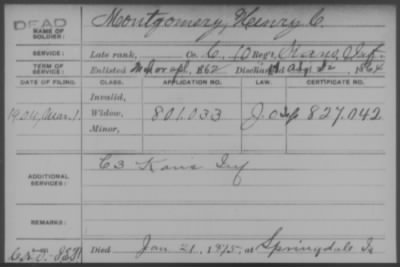 DEAD
NAME OF SOLDIER:
Montgomery, Henry C.
SERVICE:
Late rank, Co. C, 10 Reg't, Kans. Inf.
TERM OF SERVICE:
Enlisted Mch or apl, 1862 Discharged Aug 1864
DATE OF FILING.
CLASS.
APPLICATION NO.
LAW.
CERTIFICATE NO.
Invalid,
1904, Mar. 1. Widow, 801.033 827.042
Minor,
ADDITIONAL SERVICES:
C 3 Kans Inf
REMARKS:
Died Jan. 21, 1915, at Springdale Ia